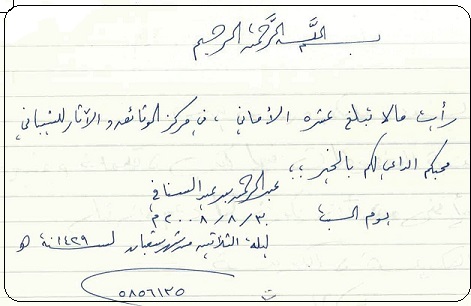 بسم الله الرحمن الرحيم
رأيت مالا تبلغ عشره الأماني ، في مركز الوثائق و الآثار للشيباني
محبكم الداعي لكم بالخير ،،
عبد الرحمن بن عبيد السقافي
يوم السبت ٢٠٠٨/٨/٣٠ م
ليلة الثلاثين من شهر شعبان لسنة ١٤٢٩ هـ
٥٨٥٦١٢٥